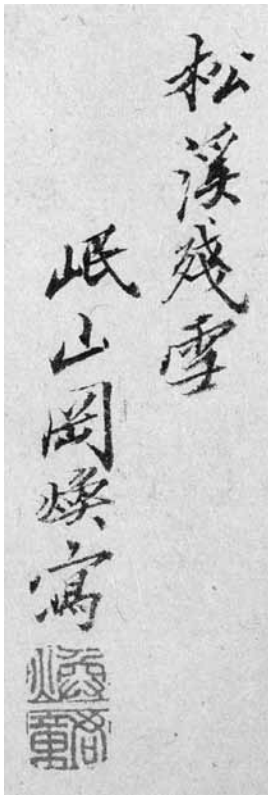 松溪殘雪
岷山岡煥寫